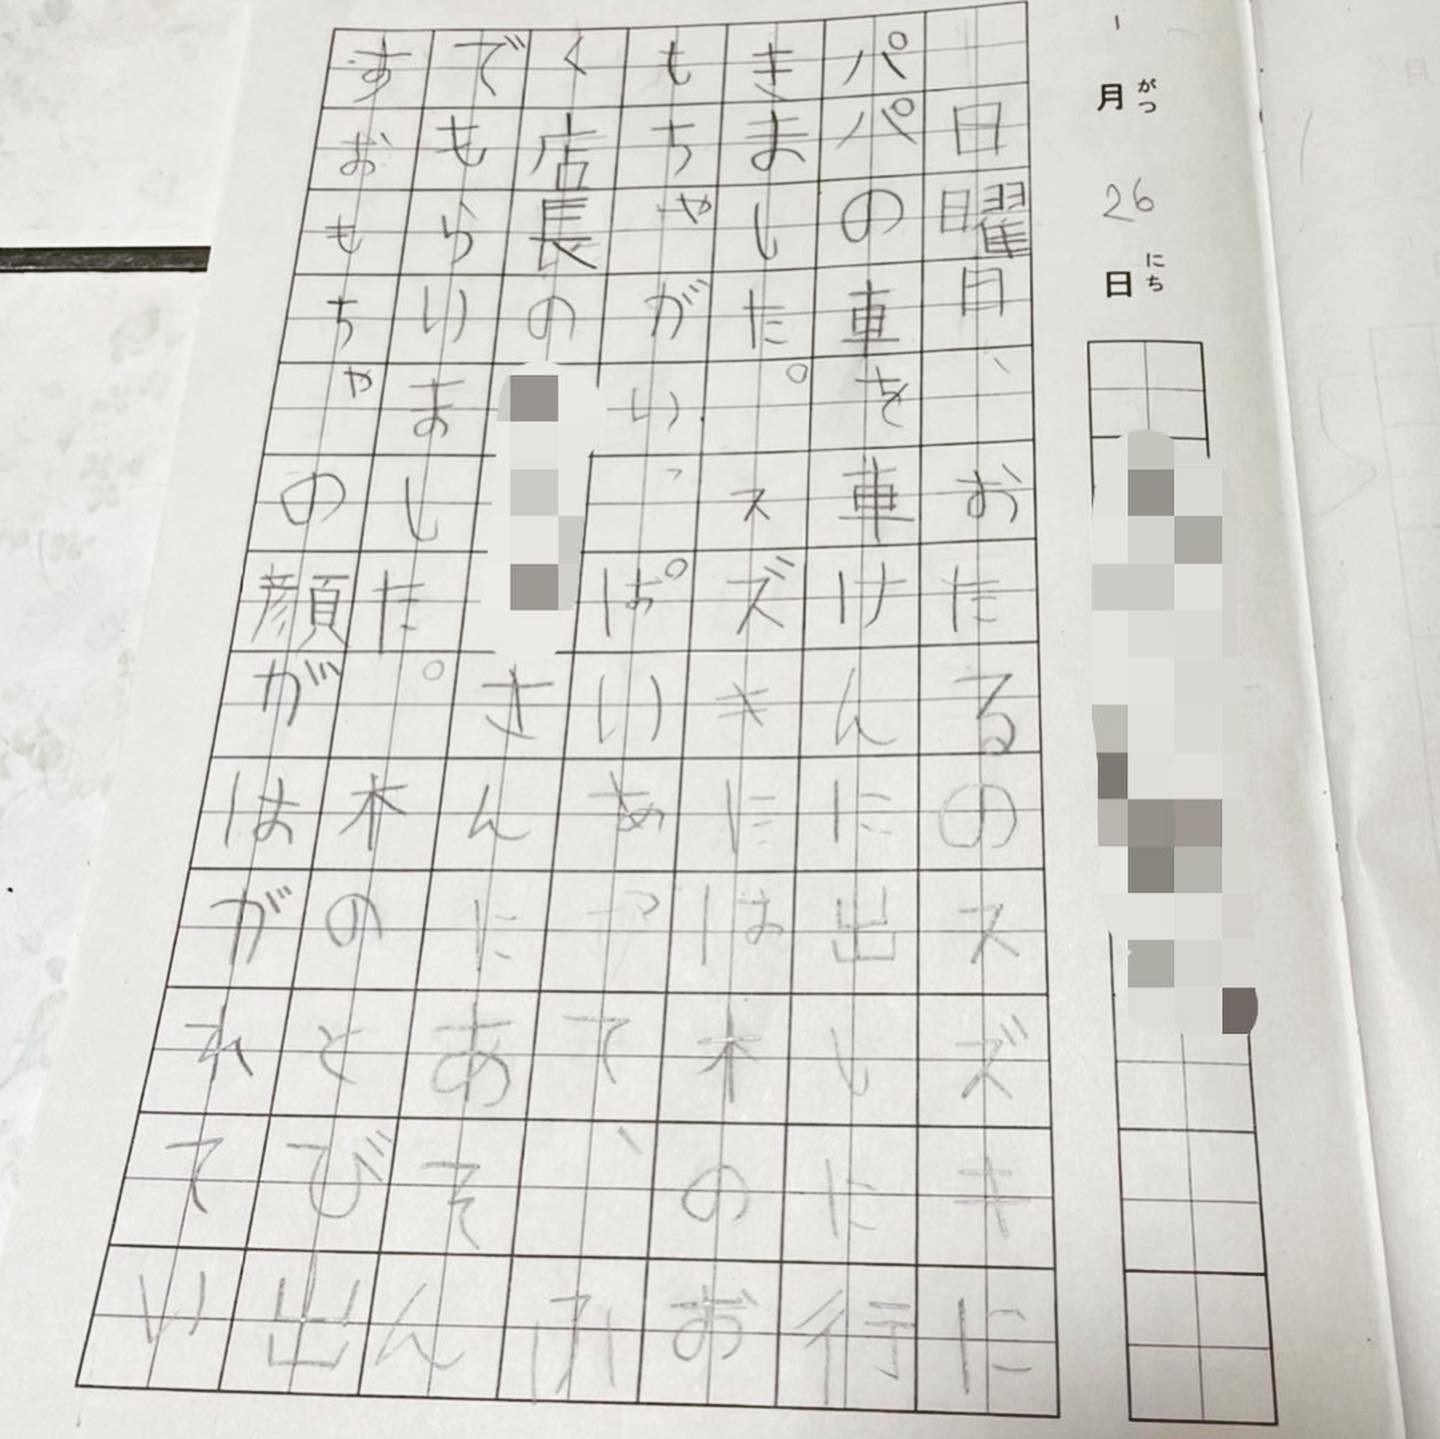 1月26日
がつ
にち
日曜日、おたるのスズキに
パパの車を車けんに出しに行
きました。スズキには木のお
もちゃがいっぱいあって、ふ
く店長の
さんにあそん
でもらいました。木のとび出
すおもちゃの顔がはがれてい